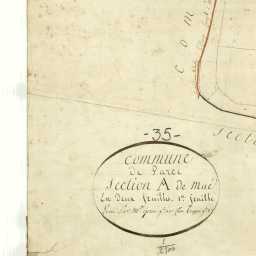 Com
Secti
-35-
Commune
De Parcé
Section A de Mué
En deux feuilles 1re feuille
1
2500